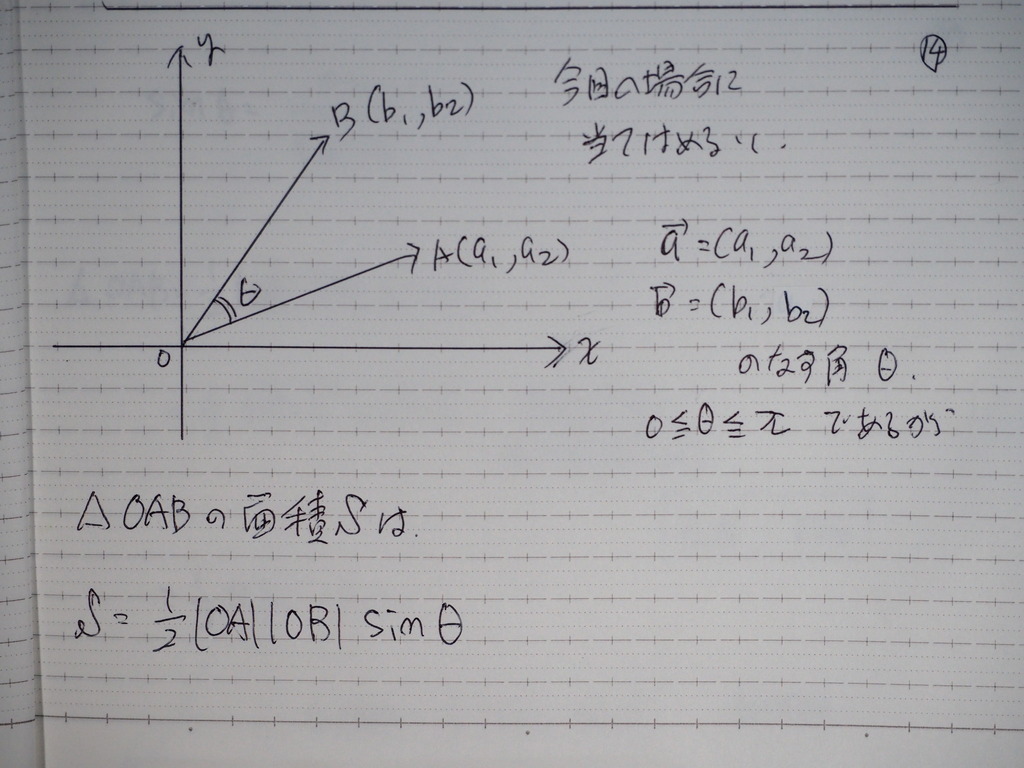 ⑭
y
B(b₁, b₂)
A(a₁, a₂)
θ
O
x
今回の場合に
当てはめると.
a⃗ = (a₁, a₂)
b⃗ = (b₁, b₂)
のなす角 θ.
0 ≦ θ ≦ π であるから
△OABの面積Sは.
S = 1/2 |OA||OB| sin θ